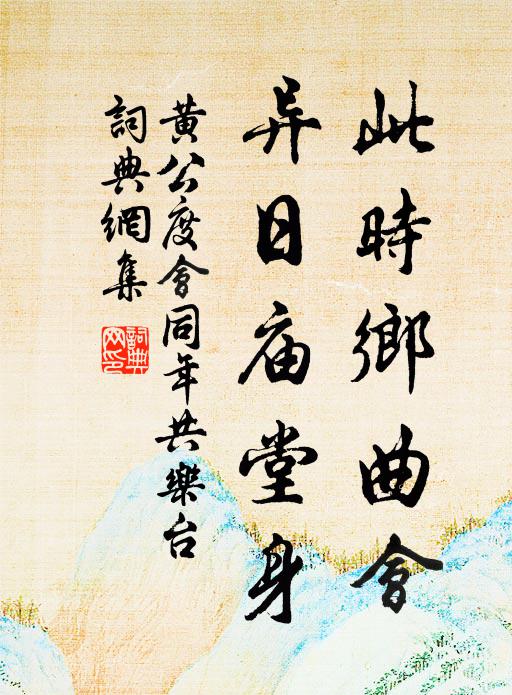 此時鄉曲會
异日庙堂身
黄公度會同年共樂台
詞典網集
詞典网印